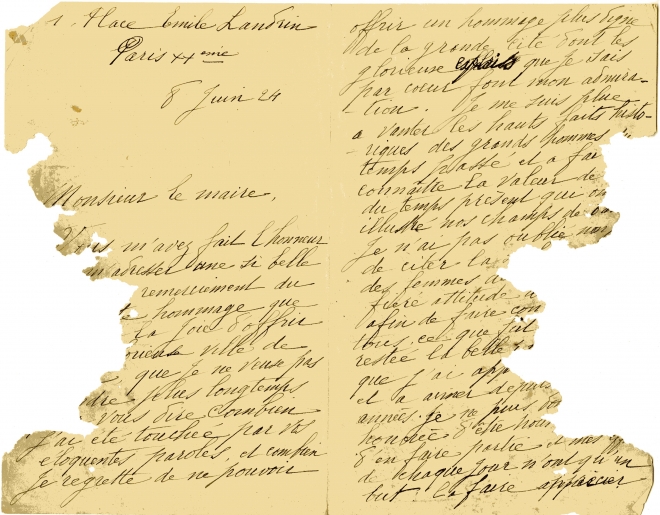 1. Place Emile Landrin
Paris XXeme
8 Juin 24
Monsieur le maire,
Vous m'avez fait l'honneur
m'adresser une si belle
remerciement du
hommage que
la joie d'offrir
rieuse ville de
que je ne veux pas
dre plus longtemps
vous dire combien
j'ai été touchée par vos
éloquentes paroles, et combien
je regrette de ne pouvoir
offrir un hommage plus digne
de la grande cité dont les
glorieuse exploits que je sais
par coeur font mon admira-
-tion. Je me suis plue
a vanter les hauts faits histo-
-riques des grands hommes
temps passé et a fai
connaître la valeur de
du temps présent qui on
illustré nos champs de
Je n'ai pas oublié non
de citer la
des femmes d
fière attitude a
afin de faire con
tous ce que fait
restée la belle
que j'ai app
et a aimer depuis
années. Je ne puis
honorée d'être
d'en faire partie et mes
de chaque jour n'ont qu'un
but: la faire apprécier